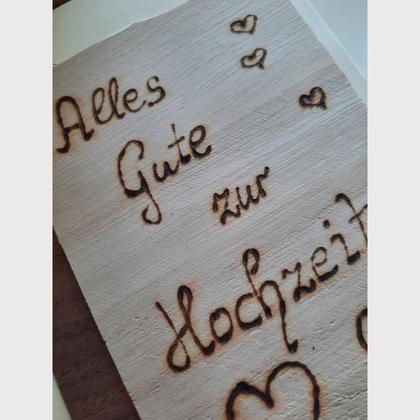 Alles
Gute
zur
Hochzeit